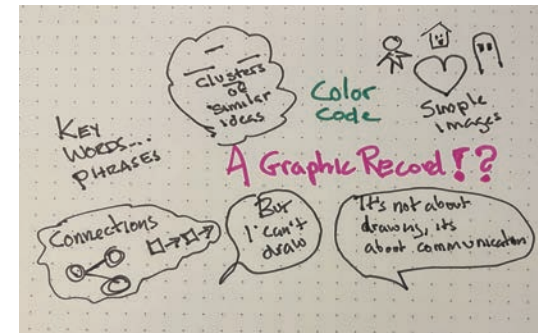 Clusters
of
Similar
ideas
Color
Code
Simple
images
KEY
WORDS...
PHRASES
A Graphic Record!?
Connections
But
I can't
draw
It's not about
drawing, its
about communication